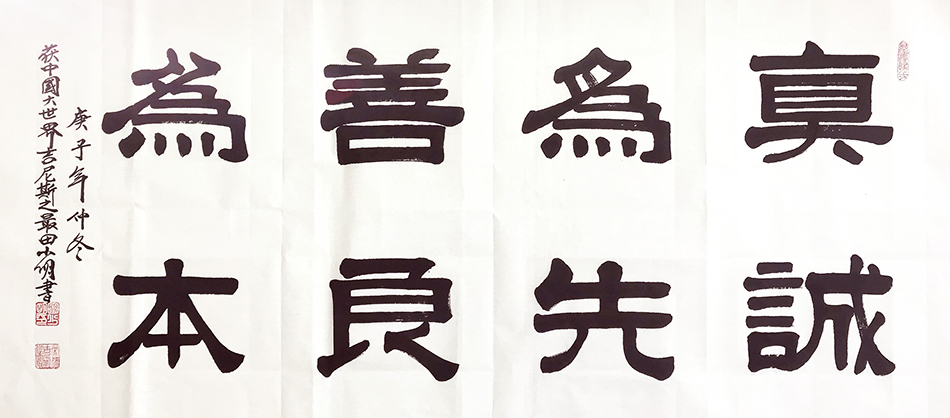 真誠
為先
善良
為本
庚子年仲冬
获中國大世界吉尼斯之最田小明書